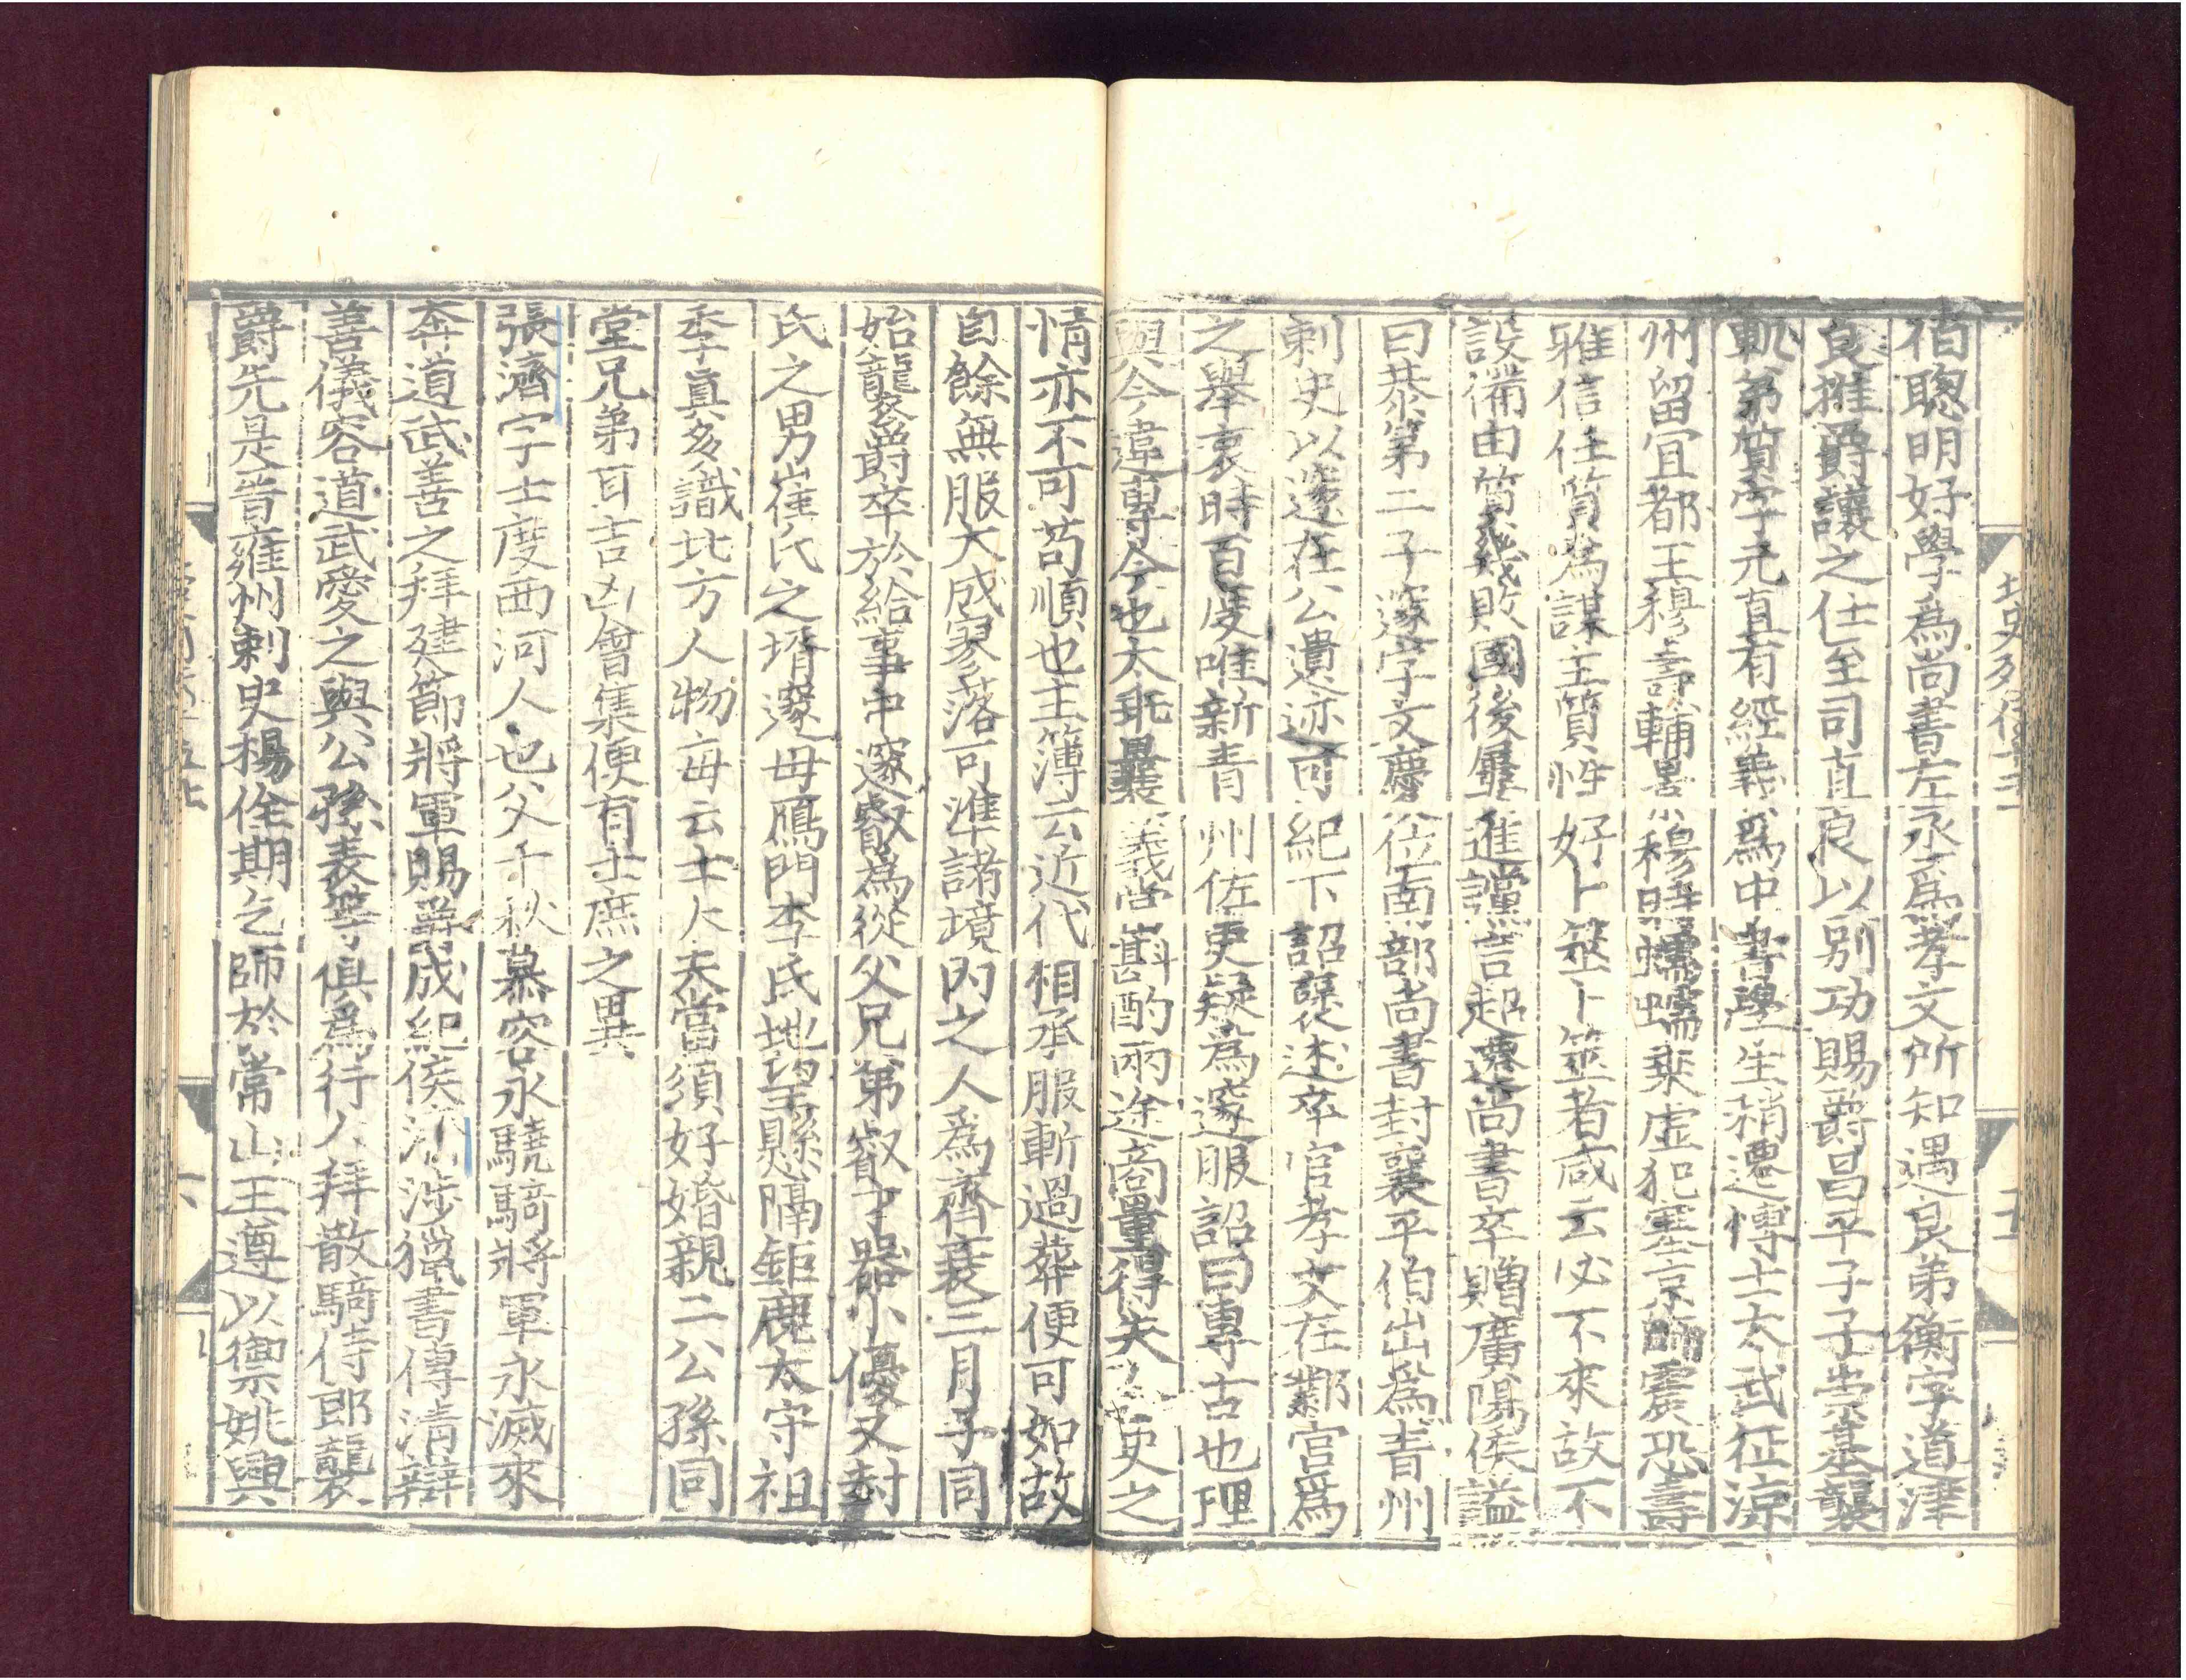 栢聰明好學爲尚書左丞爲孝文所知遇良弟衡字道津
良推爵讓之仕至司直良以别功賜爵昌平子子崇基襲
軌弟質字元直有經義爲中書學生稍遷博士太武征涼
州留宜都王穆壽輔景穆時蠕蠕乗虚犯塞京師震恐壽
雅信任質爲謀主質性好卜筮卜筮者咸云必不來故不
設備由質幾敗國後屢進讜言超遷尚書卒贈廣陽侯謚
曰恭第二子邃字文慶位南部尚書封襄平伯出爲青州
刺史以邃在公遺迹可紀下詔襃述卒官孝文在鄴宮爲
之舉哀時百度唯新青州佐吏疑爲邃服詔曰專古也理
與今違專今也太乖曩義當斟酌兩途商量得失吏之
情亦不可苟順也主簿云近代相承服斬過葬便可如故
自餘無服大成寥落可準諸境内之人爲齊衰三月子同
始襲爵卒於給事中邃叡爲從父兄弟叡才器小優又封
氏之男崔氏之壻邃母鴈門李氏地望懸隔鉅鹿太守祖
季真多識北方人物每云士大夫當須好婚親二公孫同
堂兄弟耳吉凶會集便有士庶之異
張濟字士度西河人也父千秋慕容永驍騎將軍永滅來
奔道武善之拜建節將軍賜爵成紀侯濟涉獵書傳清辯
善儀容道武愛之與公孫表等俱爲行人拜散騎侍郎襲
爵先是晉雍州刺史楊佺期乞師於常山王遵以禦姚興